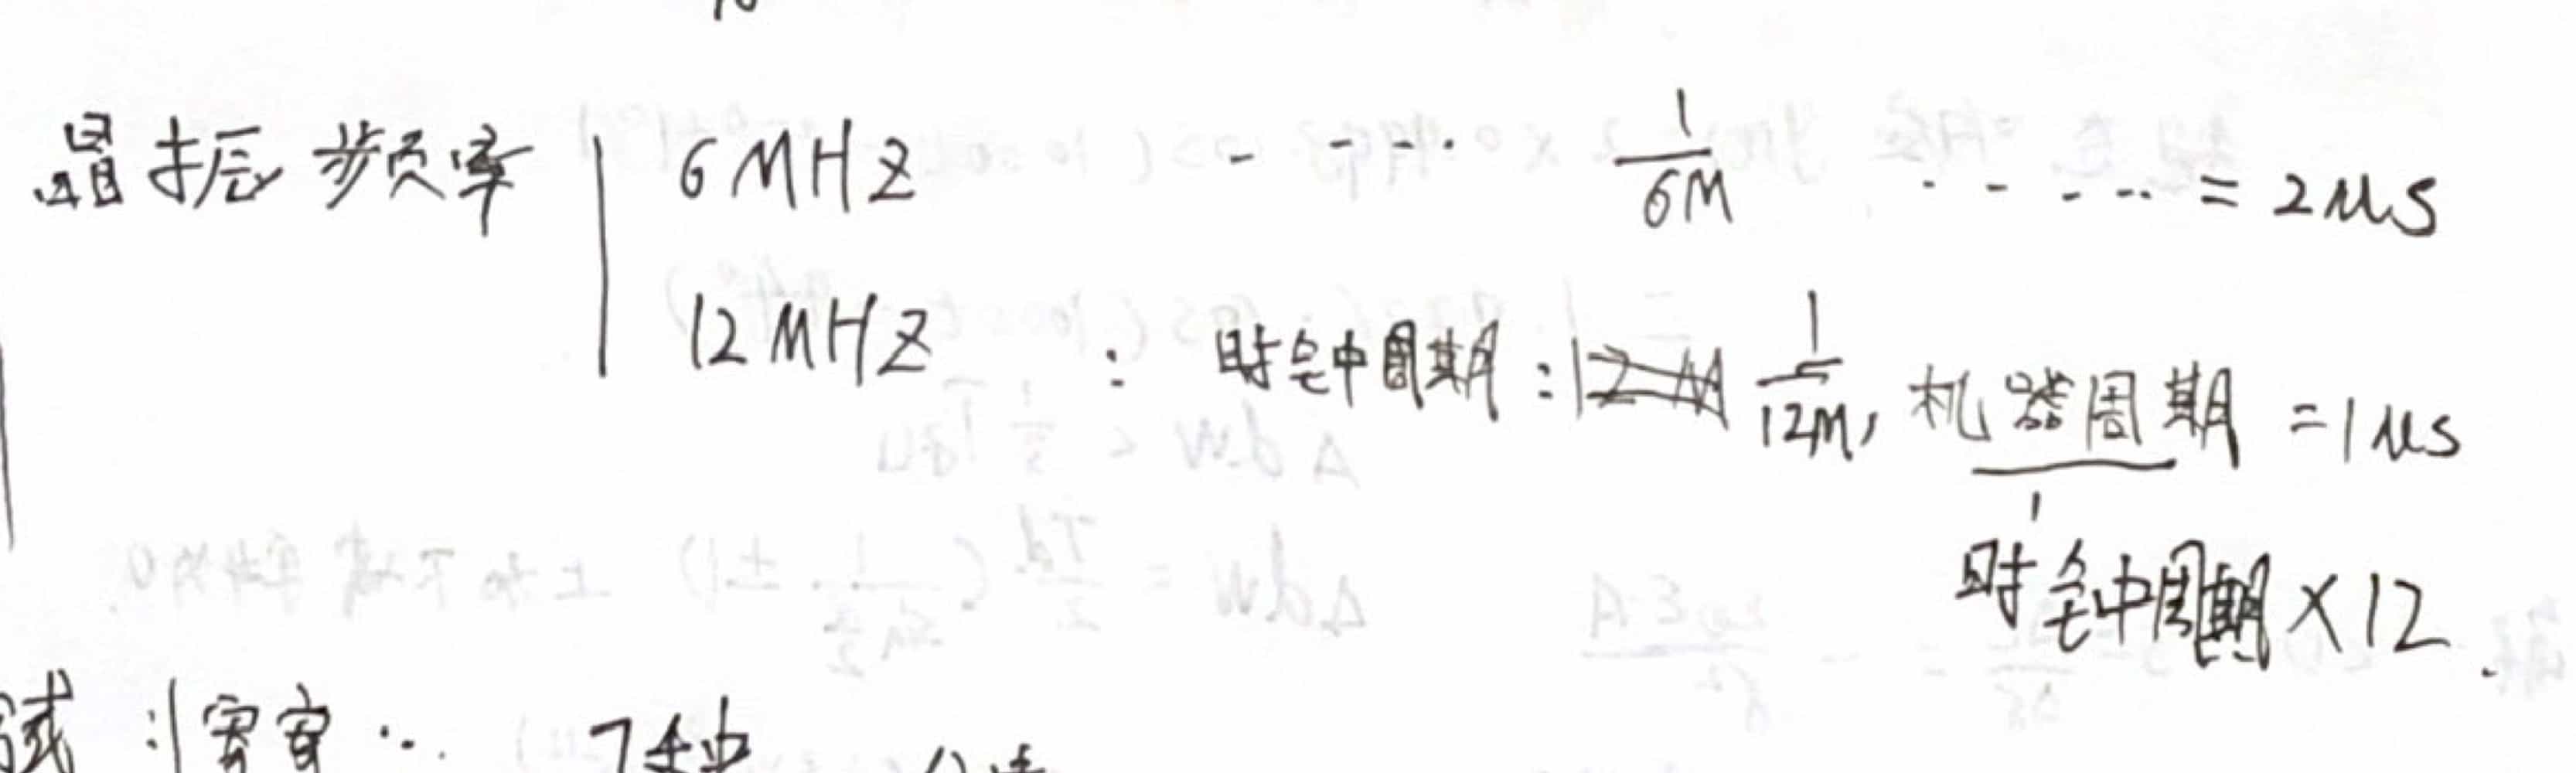 晶振频率 6MHZ - - - - · 1/6M · - - - -- = 2μs
12MHZ : 时钟周期: 1/12M, 机器周期 =1μs
时钟周期×12.
7种